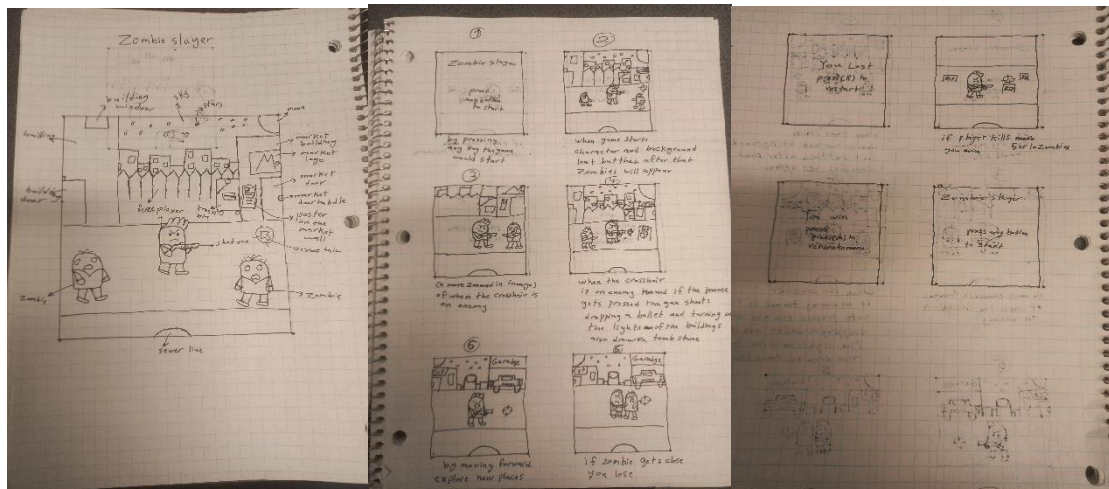 Zombie slayer
building
window
sky
stars
moon
building
market
building
market
logo
market
door
market
doorhandle
building
door
poster
on the
market
wall
shotgun
crosshair
Zombie
Zombie
sewer line
①
Zombie slayer
press
any button
to start
by pressing
any key the game
would start
②
when game starts
character and background
but then after that
Zombies will appear
③
(a more zoomed in image)
of when the crosshair is
on an enemy
when the crosshair
is on an enemy and if the mouse
gets pressed the gun shoots
dropping a bullet and turning on
the lights of one buildings
also draws tomb stone
⑤
Garadge
by moving forward
explore new places
Garadge
if zombie gets close
you lose
You Lost
press(R) to
restart
if player kills more
you win
Zombie slayer
press any button
to start